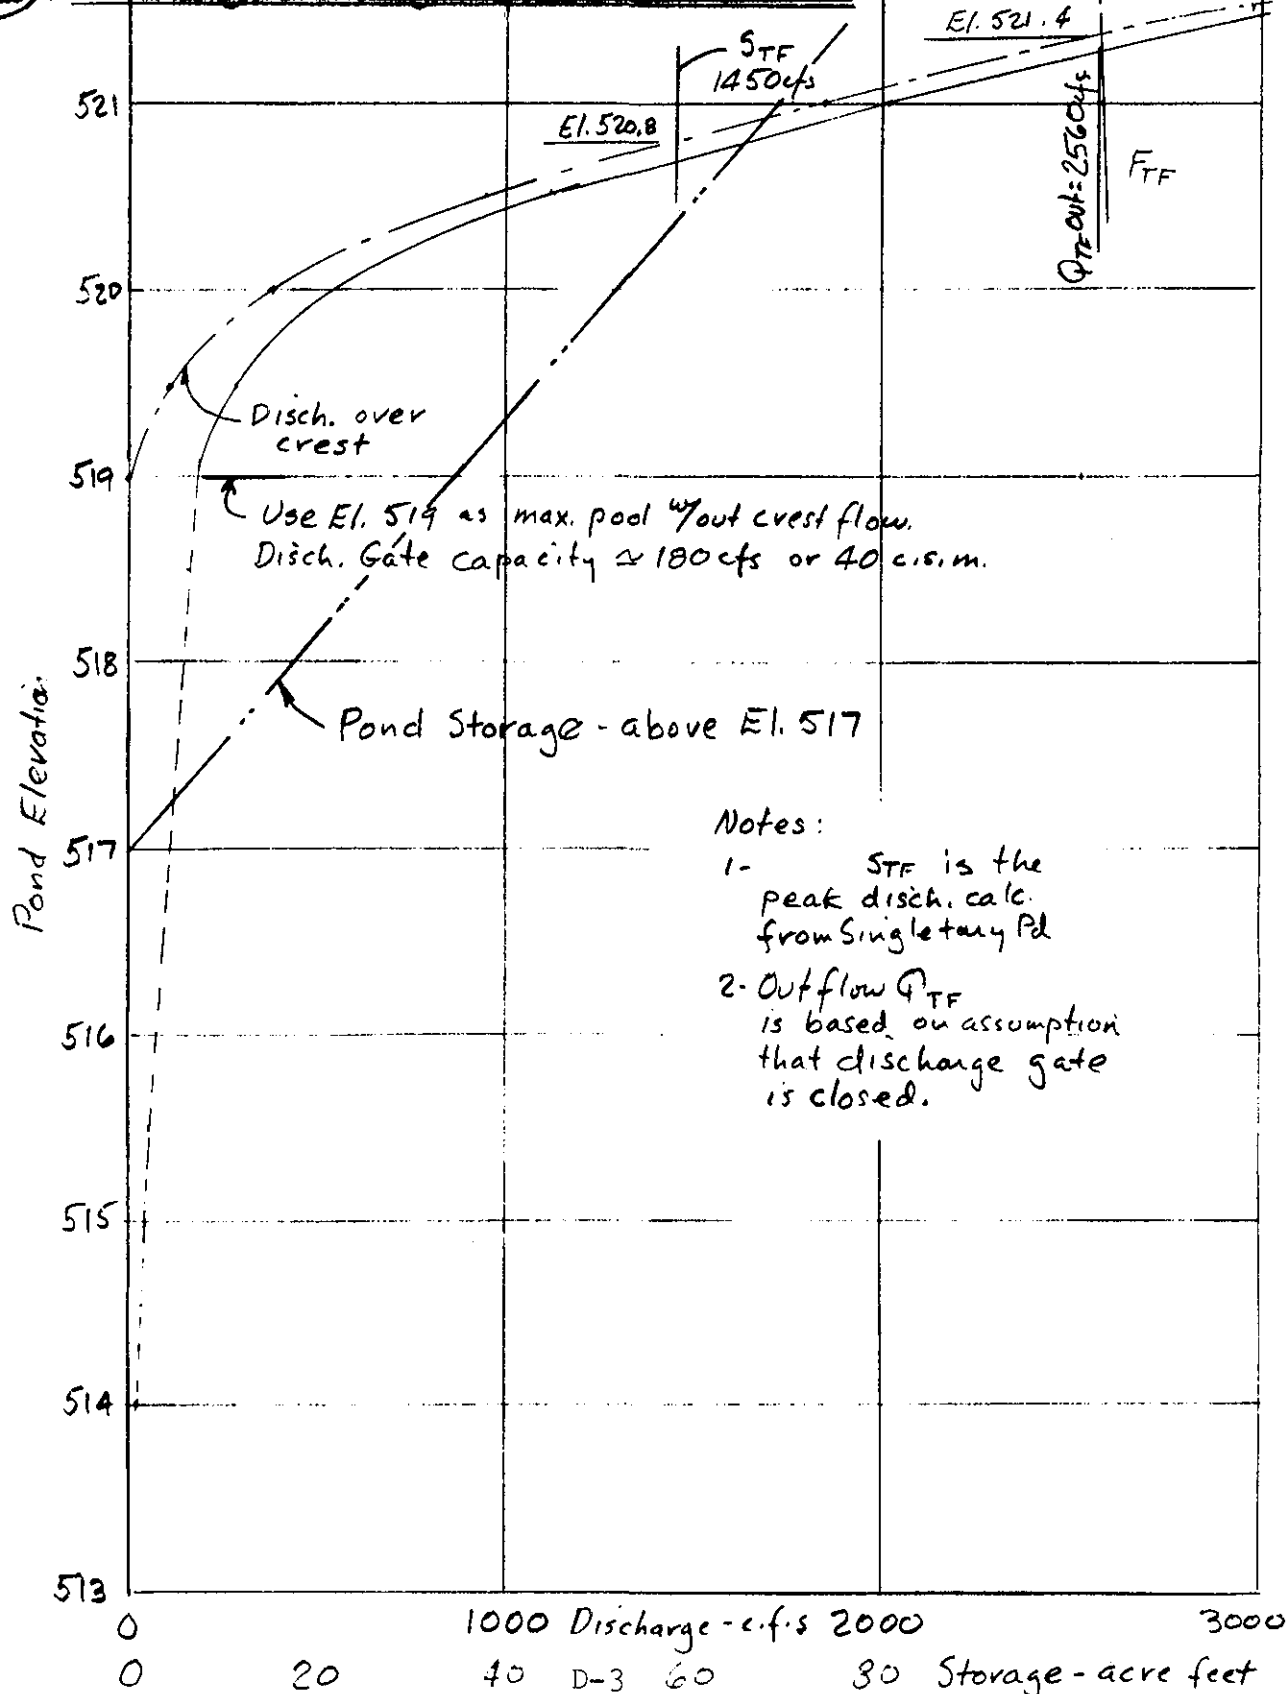 El. 521.4
STF
1450cfs
521
El. 520.8
QTF out = 2560cfs
FTF
520
Disch. over
crest
519
Use El. 519 as max. pool w/out crest flow.
Disch. Gate capacity ≈ 180cfs or 40 c.s.m.
518
Pond Storage - above El. 517
Pond Elevation
517
Notes:
1- STF is the
peak disch. calc.
from Singletary Pd
516
2- Outflow QTF
is based on assumption
that discharge gate
is closed.
515
514
513
0 1000 Discharge - c.f.s 2000 3000
0 20 40 D-3 60 80 Storage - acre feet